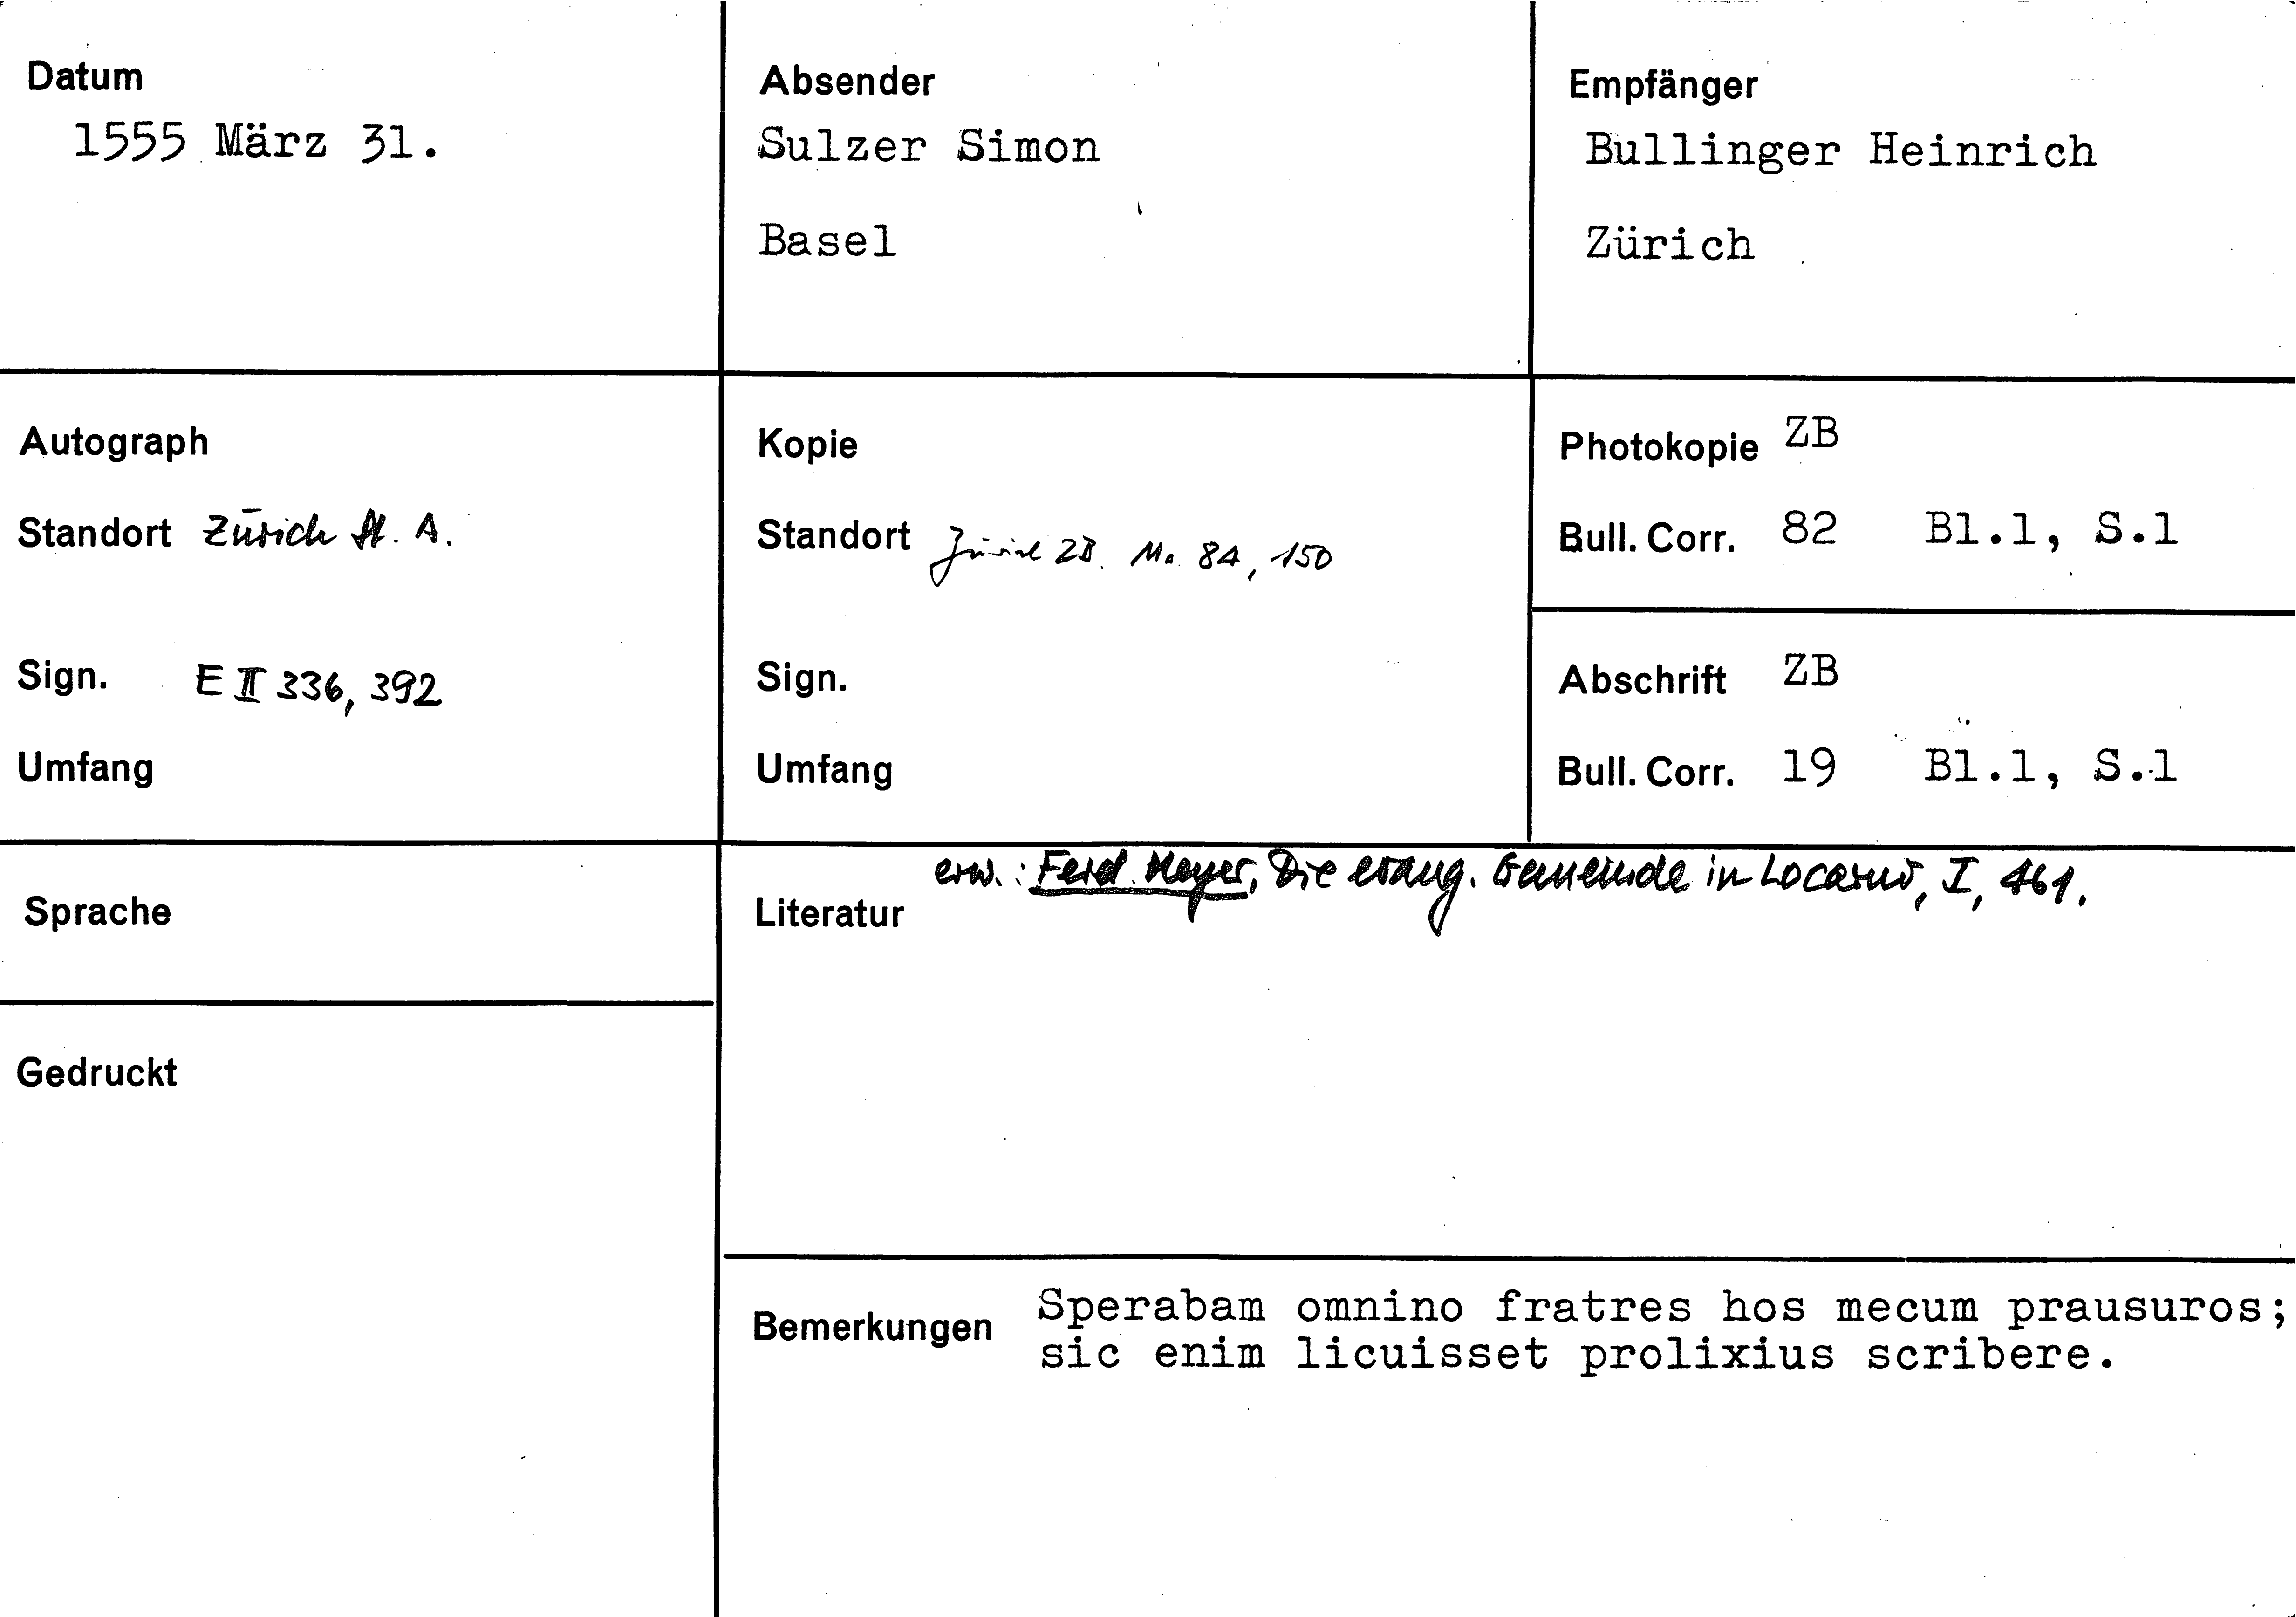 Datum
1555 März 31.
Absender
Sulzer Simon
Basel
Empfänger
Bullinger Heinrich
Zürich
Autograph
Standort Zürich St. A.
Sign. E II 336, 392
Umfang
Kopie
Standort Zürich ZB. Ms. 84, 150
Sign.
Umfang
Photokopie ZB
Bull. Corr. 82 Bl.1, S.1
Abschrift ZB
Bull. Corr. 19 Bl.1, S.1
Sprache
Gedruckt
erw.: Ferd. Meyer, Die evang. Gemeinde in Locarno, I, 461.
Literatur
Bemerkungen Sperabam omnino fratres hos mecum prausuros;
sic enim licuisset prolixius scribere.